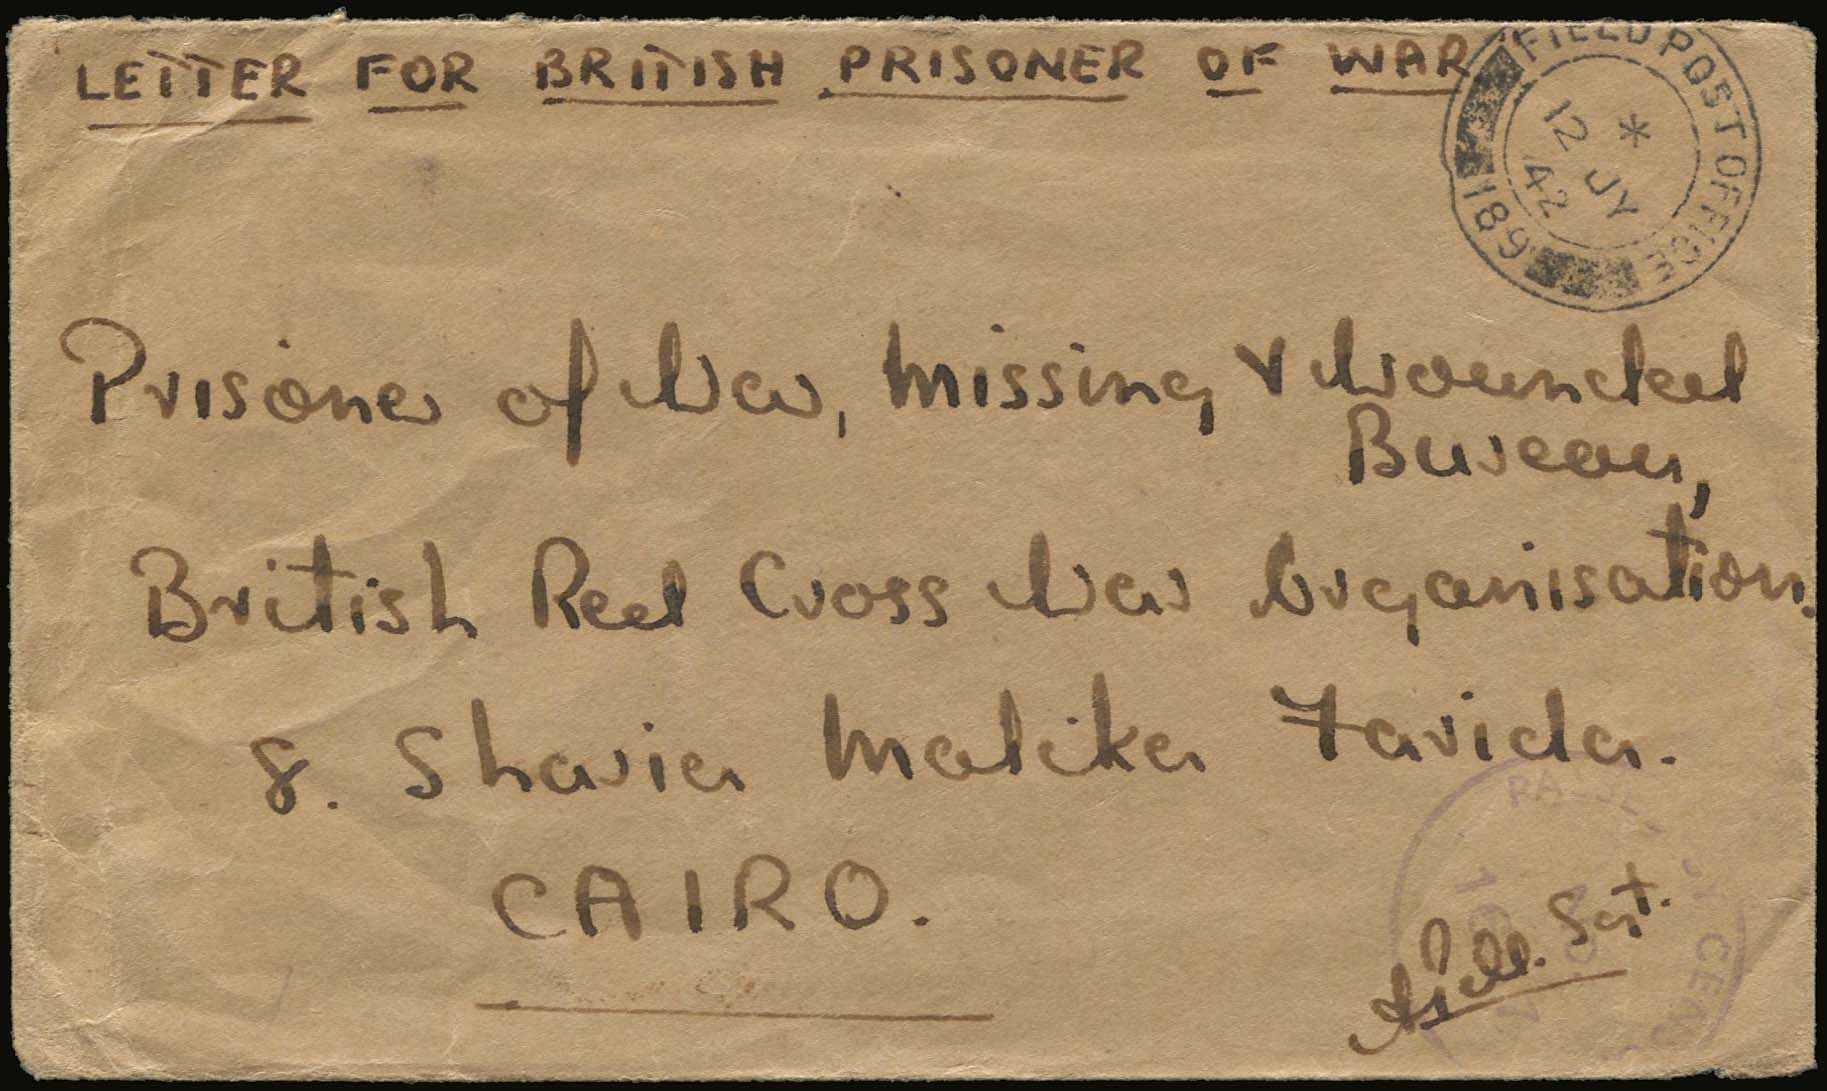 LETTER FOR BRITISH PRISONER OF WAR
FIELD POST OFFICE
189
*
12 JY
42
Prisoner of War, Missing & Wounded
Bureau,
British Red Cross War Organisation.
8. Sharia Malika Farida.
CAIRO.
Sgt.